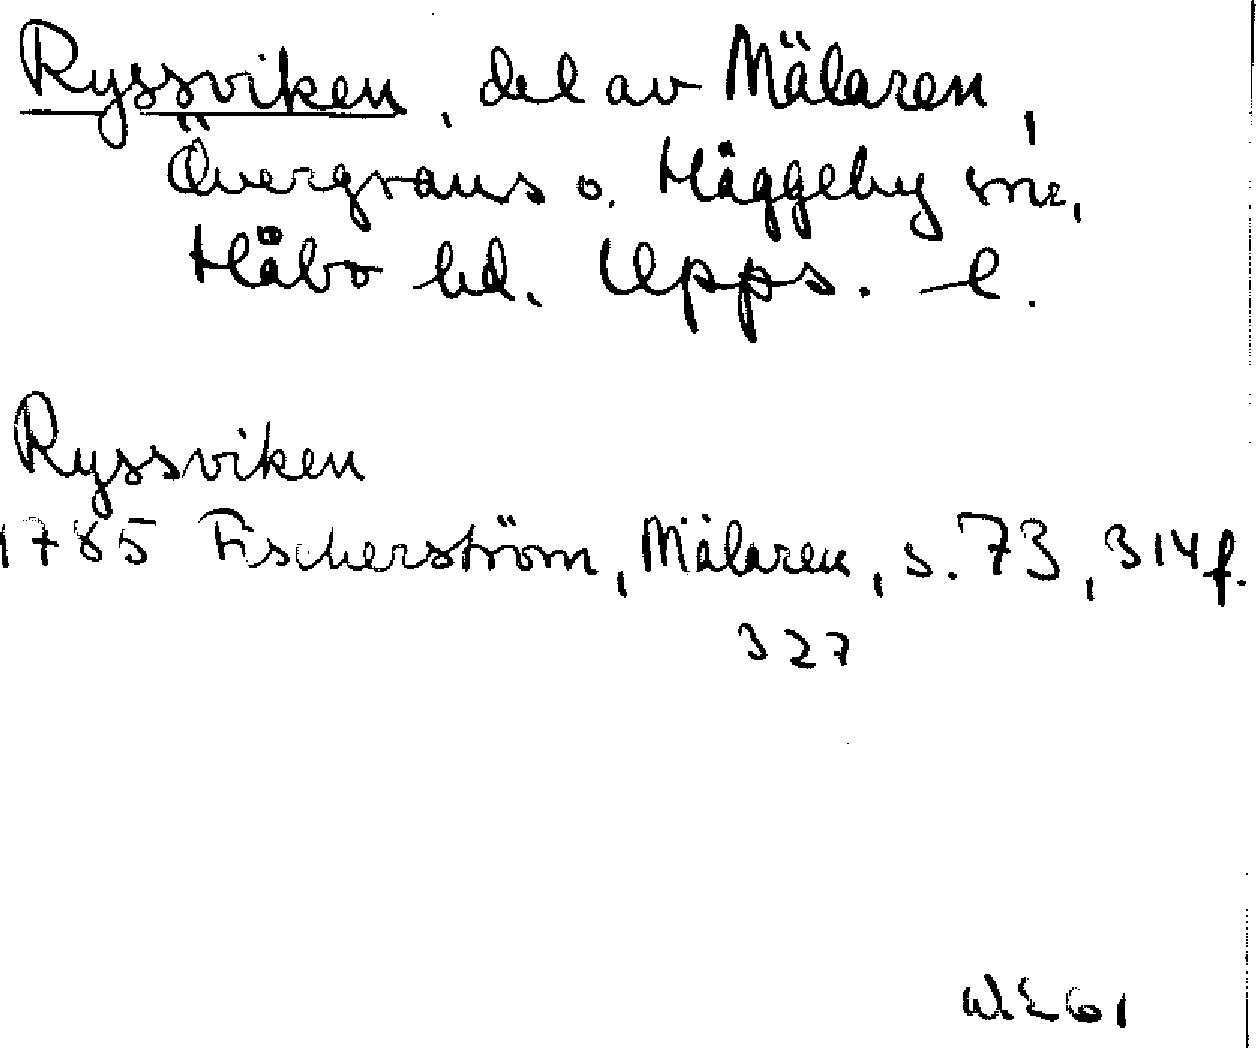 Ryssviken, del av Mälaren,
Övergrans o. Häggeby snr,
Håbo hd. Upps. l.
Ryssviken
1785 Fischerström, Mälaren, s. 73, 314 f.
327
W.E 61